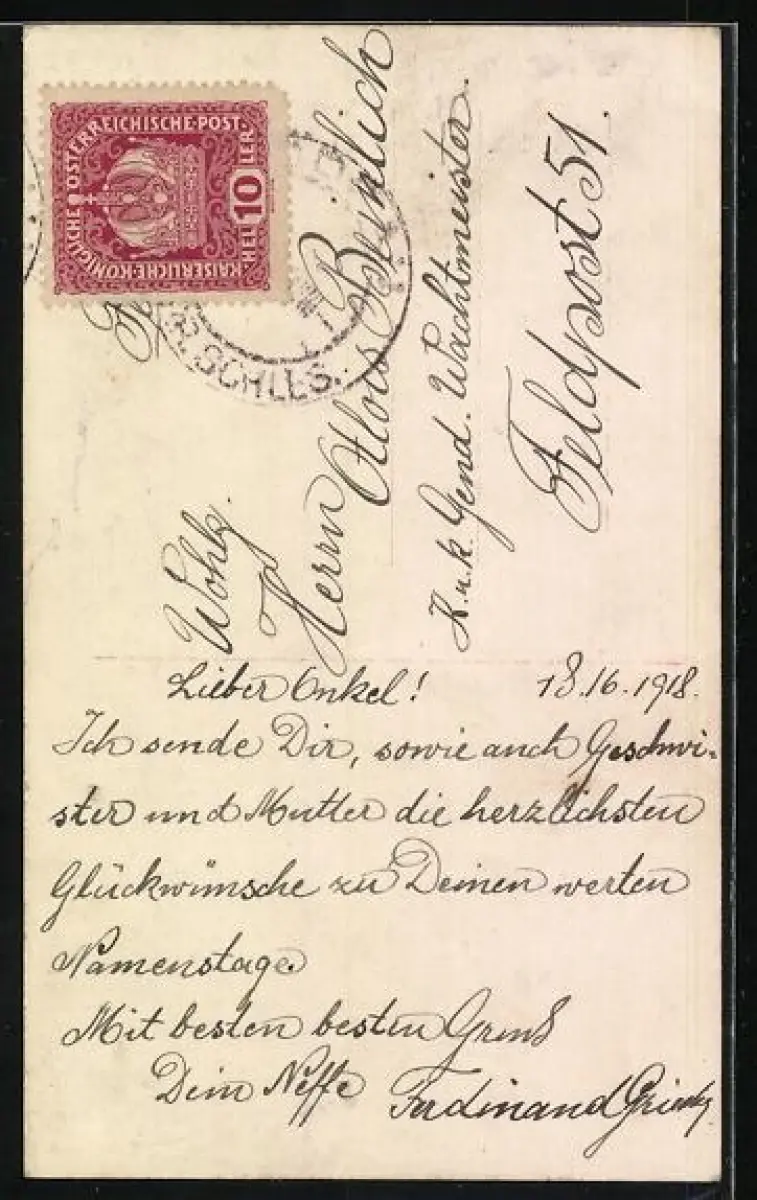 KAISERLICHE·KÖNIGLICHE ÖSTERREICHISCHE·POST.
HEL 10 LER
SCHLES.
Wohlg.
Herrn Alois Beinlich
K. u. k. Gend. Wachtmeister.
Feldpost 51.
Lieber Onkel! 18.16.1918.
Ich sende Dir, sowie auch Geschwi-
ster und Mutter die herzlichsten
Glückwünsche zu Deinen werten
Namenstage
Mit besten besten Gruß
Dein Neffe Ferdinand